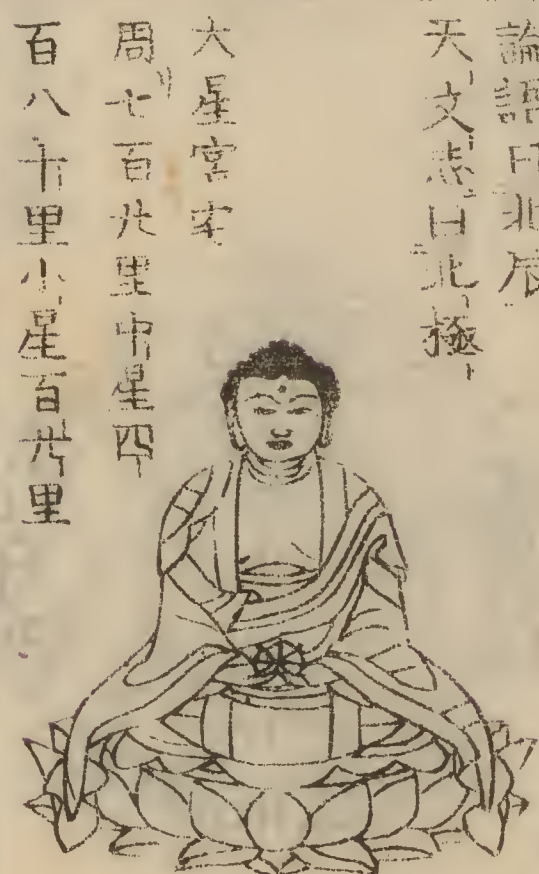 論語曰北辰
天文志曰北極
大星宮宅
周七百廿里中星四
百八十里小星百廿里